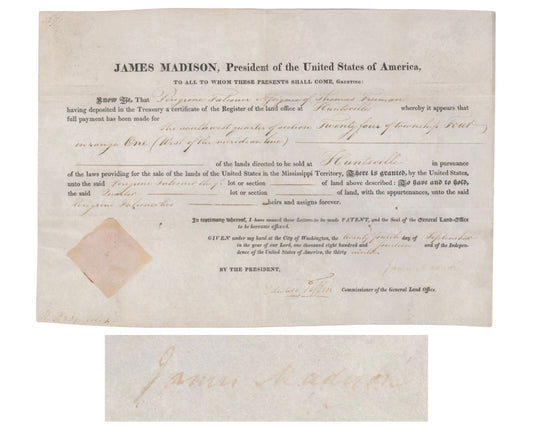 JAMES MADISON, President of the United States of America,
TO ALL TO WHOM THESE PRESENTS SHALL COME, GREETING:
Know Ye, That Peregrine Falconer Assignee of Thomas Freeman
having deposited in the Treasury a certificate of the Register of the land office at Huntsville whereby it appears that
full payment has been made for
the southwest quarter of section Twenty four of township Four
in range One (West of the meridian line)
of the lands directed to be sold at Huntsville in pursuance
of the laws providing for the sale of the lands of the United States in the Mississippi Territory, There is granted, by the United States,
unto the said Peregrine Falconer lot or section of land above described: To have and to hold,
the said quarter lot or section of land, with the appurtenances, unto the said
Peregrine Falconer his heirs and assigns forever.
In testimony whereof, I have caused these Letters to be made PATENT, and the Seal of the General Land-Office
to be hereunto affixed.
GIVEN under my hand at the City of Washington, the twenty fourth day of September
in the year of our Lord, one thousand eight hundred and fourteen and of the Independence
of the United States of America, the thirty ninth.
BY THE PRESIDENT, James Madison
Tiffin Commissioner of the General Land Office.
James Madison